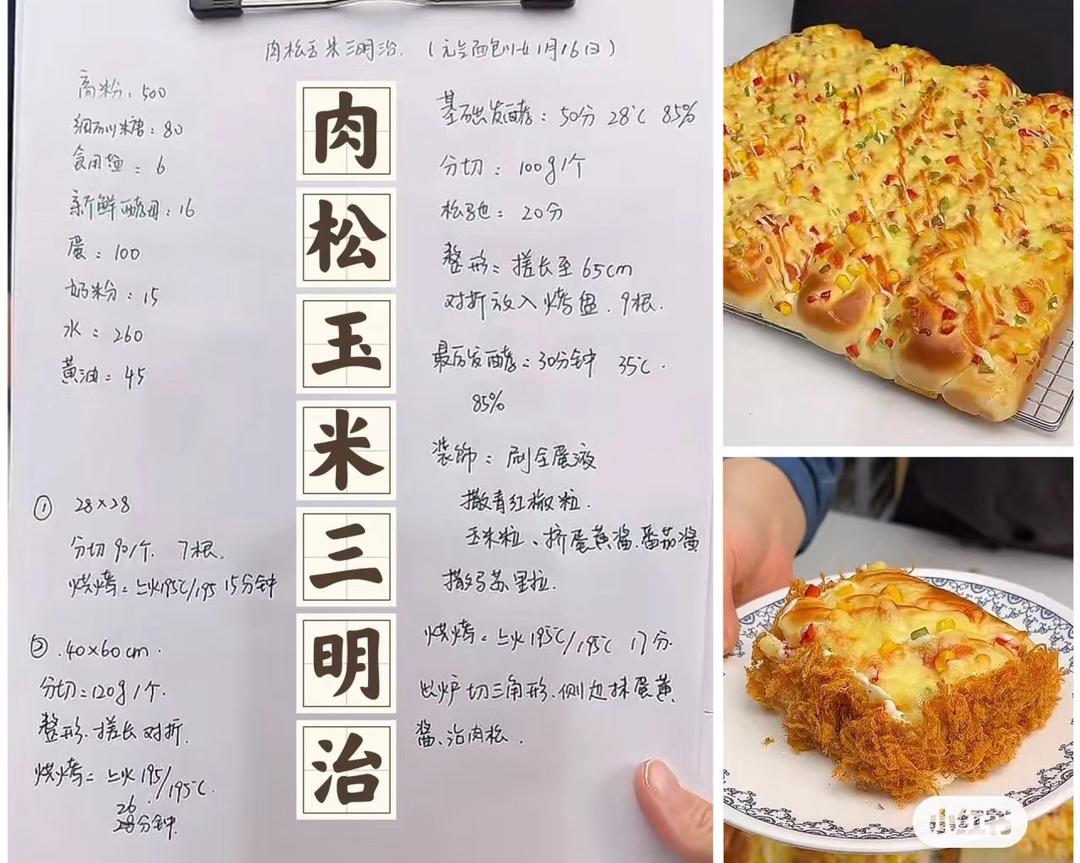 肉松玉米三明治. (元旦面包 1月16日)
高粉: 500
细砂糖: 80
食用盐: 6
新鲜酵母: 16
蛋: 100
奶粉: 15
水: 260
黄油: 45
① 28×28
分切 90/个. 7根.
烘烤: 上火195℃/195 15分钟
② .40×60cm.
分切=120g/个.
整形. 搓长对折.
烘烤= 上火195/195℃.
26
28分钟.
肉
松
玉
米
三
明
治
基础发酵: 50分 28℃ 85%
分切: 100g/个
松弛: 20分
整形: 搓长至65cm
对折放入烤盘. 9根.
最后发酵: 30分钟 35℃.
85%
装饰: 刷全蛋液
撒青红椒粒.
玉米粒、挤蛋黄酱.番茄酱
撒马苏里拉.
烘烤= 上火195℃/195℃ 17分.
出炉切三角形.侧边抹蛋黄
酱、沾肉松.
小红书